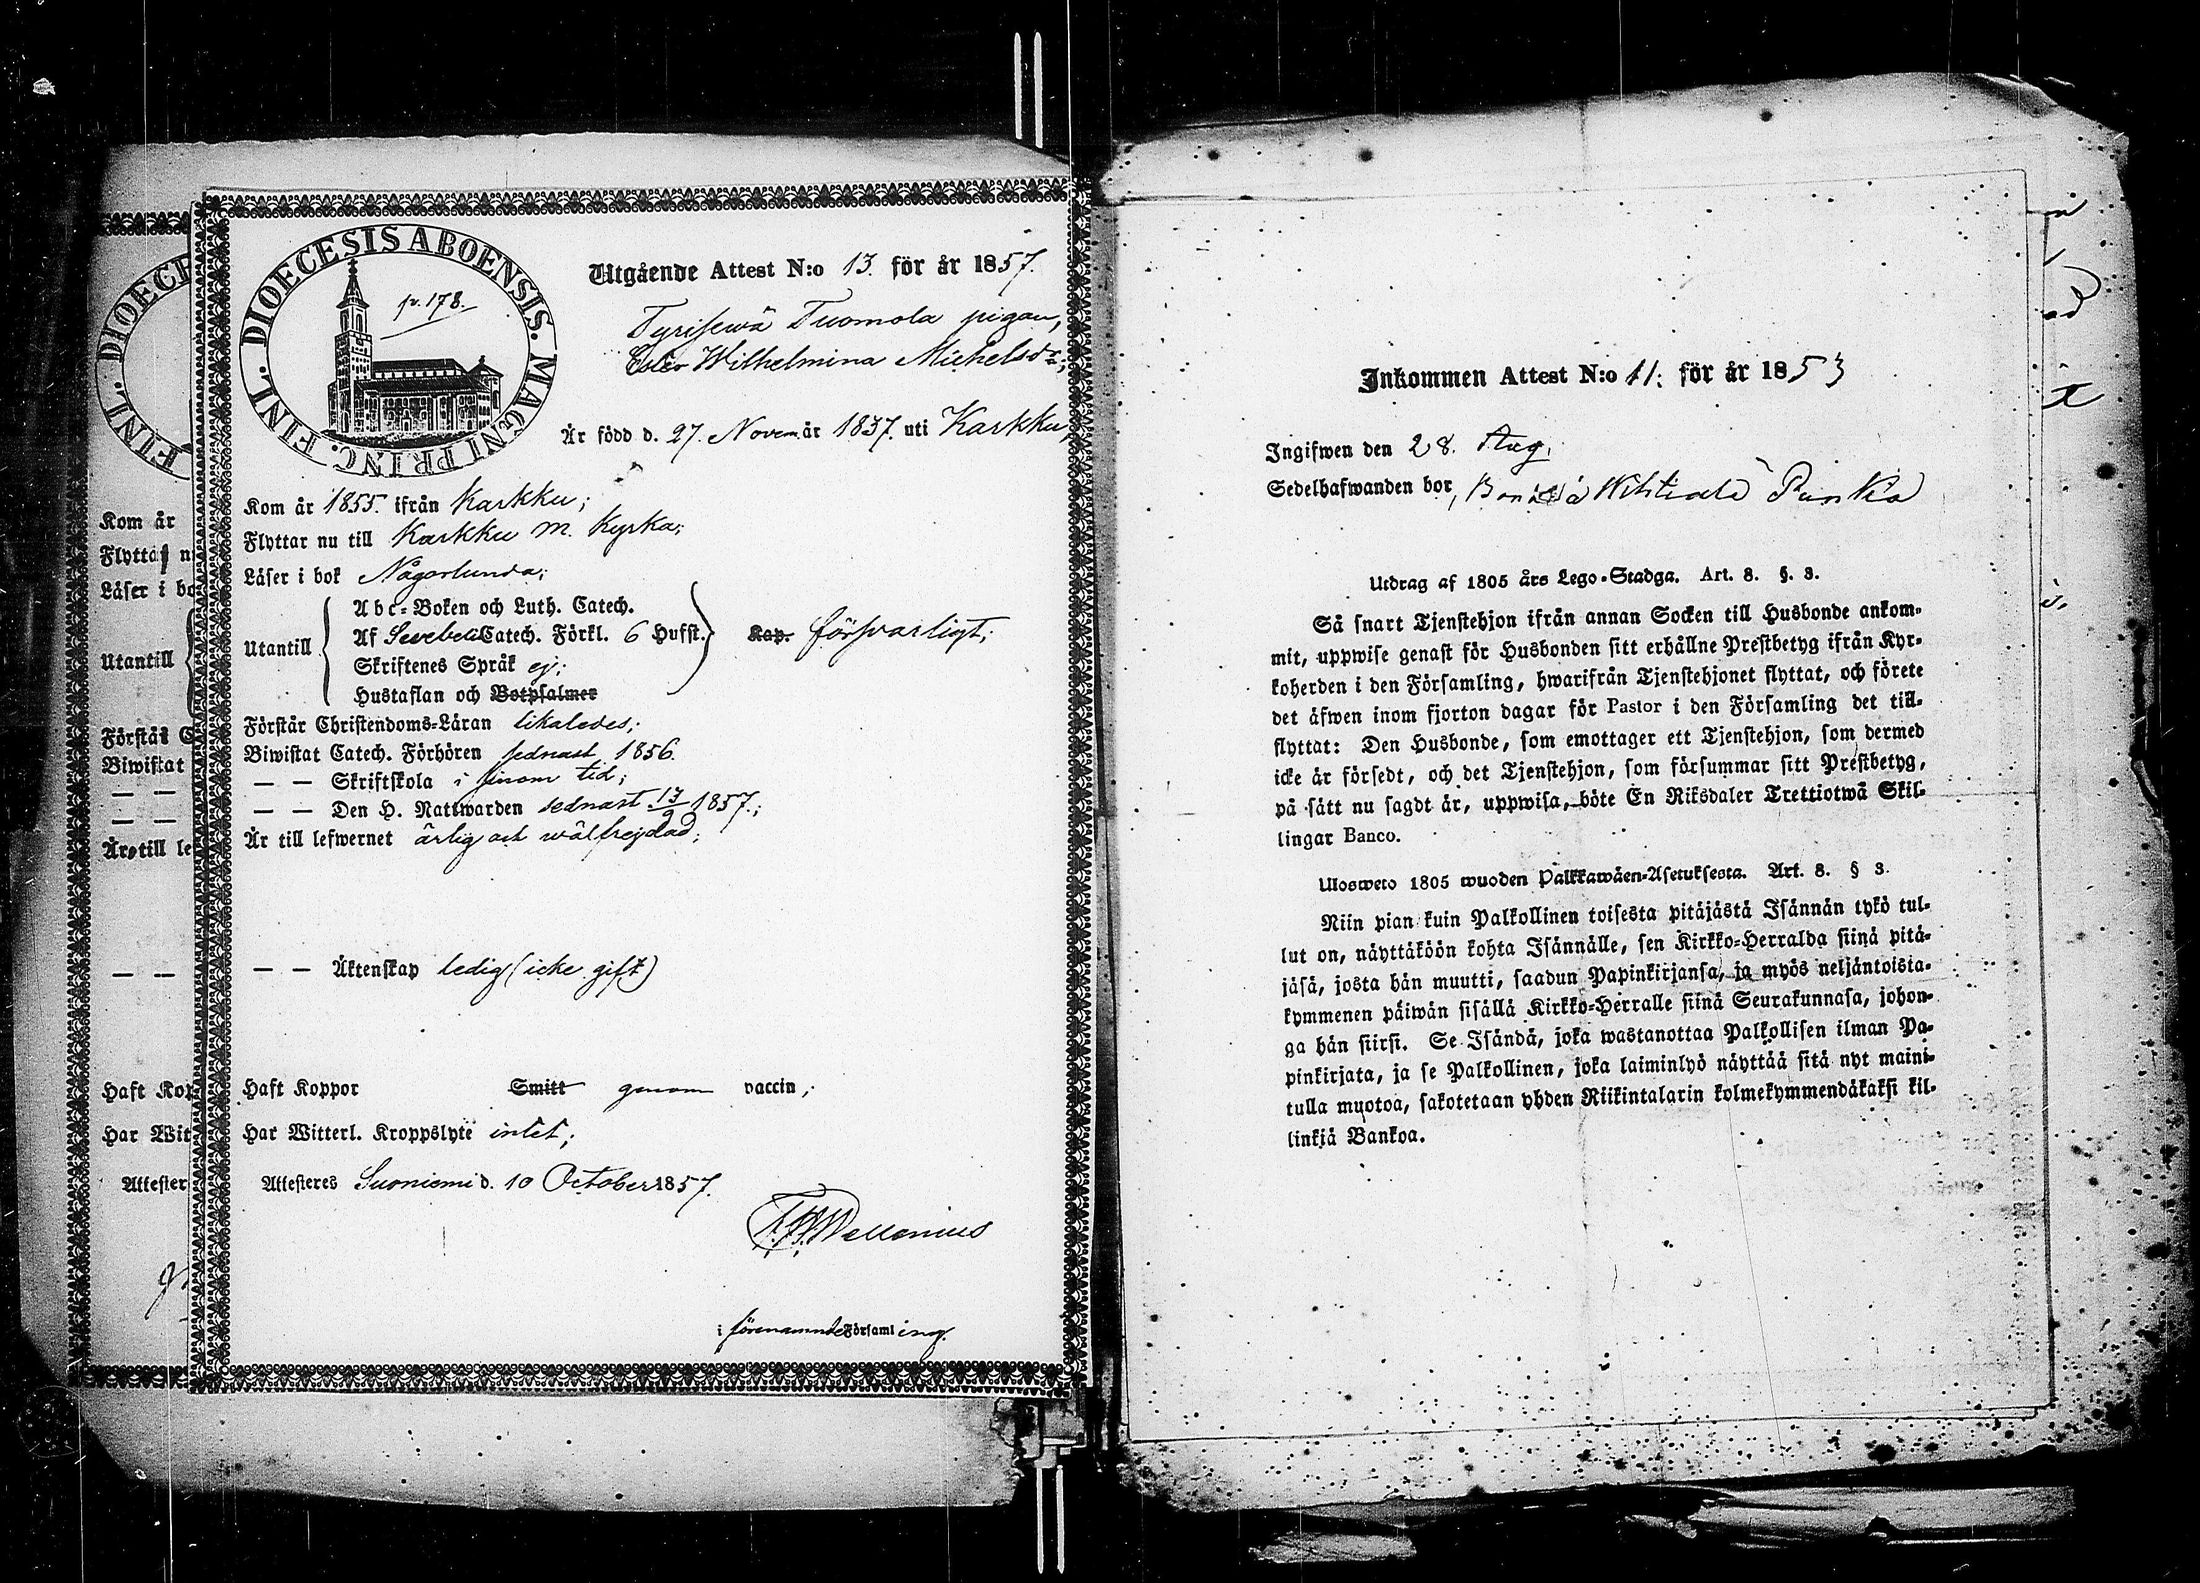 DIOECESIS ABOENSIS. MAGNI PRINC. FINL.
p. 178.
Utgående Attest N:o 13. för år 1857.
Tyrisewä Tuomola pigan,
Wilhelmina Michelsdr;
Är född d. 27. Novem år 1837. uti Karkku,
Kom år 1855. ifrån Karkku;
Flyttar nu till Karkku m. Kyrka;
Läser i bok Någorlunda;
Utantill
Abc-Boken och Luth. Catech.
Af Svebelii Catech. Förkl. 6 Hufst.
Skriftenes Språk ej;
Hustaflan och Botpsalmer
Kap. försvarligt;
Förstår Christendoms-Läran likaledes;
Biwistat Catech. Förhören sednast 1856.
— — Skriftskola i sinom tid;
— — Den H. Nattwarden sednast 13/9 1857.;
Är till lefwernet ärlig och wälfrejdad;
— — Äktenskap ledig (icke gift)
Haft Koppor Smitt genom vaccin;
Har Witterl. Kroppslyte intet;
Attesteres Suoniemi d. 10 October 1857.
Wellenius
i förenamnde Församling.
DIOECE
FINL.
Kom år
Flyttar n
Läser i bo
Utantill
Förstår C
Biwistat
— —
— —
Är till le
— —
Haft Kop
Har Wit
Attester
Inkommen Attest N:o 11. för år 1853
Ingifwen den 28. Aug.
Sedelhafwanden bor,
Utdrag af 1805 års Lego-Stadga. Art. 8. §. 3.
Så snart Tjenstehjon ifrån annan Socken till Husbonde ankom-
mit, uppwise genast för Husbonden sitt erhållne Prestbetyg ifrån Kyr-
koherden i den Församling, hwarifrån Tjenstehjonet flyttat, och förete
det äfwen inom fjorton dagar för Pastor i den Församling det till-
flyttat: Den Husbonde, som emottager ett Tjenstehjon, som dermed
icke är försedt, och det Tjenstehjon, som försummar sitt Prestbetyg,
på sätt nu sagdt är, uppwisa, böte En Riksdaler Trettiotwå Skil-
lingar Banco.
Ulosweto 1805 wuoden Palkkawäen-Asetuksesta. Art. 8. § 3.
Niin pian kuin Palkollinen toisesta pitäjästä Isännän tykö tul-
lut on, näyttäköön kohta Isännälle, sen Kirkko-Herralda siinä pitä-
jäsä, josta hän muutti, saadun Papinkirjansa, ja myös neljäntoista-
kymmenen päiwän sisällä Kirkko-Herralle siinä Seurakunnasa, johon-
ga hän siirsi. Se Isändä, joka wastanottaa Palkollisen ilman Pa-
pinkirjata, ja se Palkollinen, joka laiminlyö näyttää sitä nyt maini-
tulla muotoa, sakotetaan yhden Riikintalarin kolmekymmendäkaksi kil-
linkjä Bankoa.